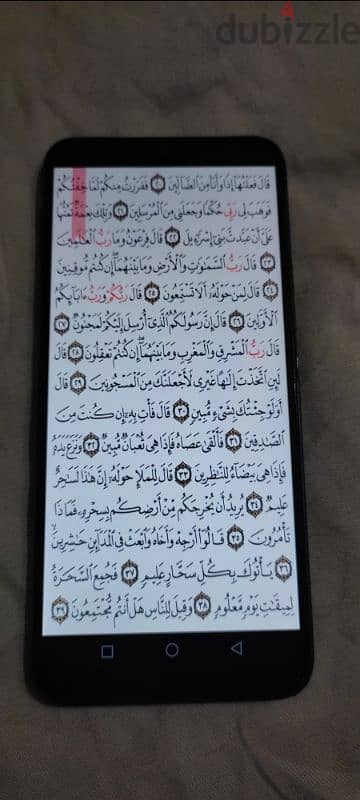 dubizzle
قَالَ فَعَلْتُهَا إِذًا وَأَنَا مِنَ الضَّالِّينَ ٢٠ فَفَرَرْتُ مِنكُمْ لَمَّا خِفْتُكُمْ
فَوَهَبَ لِي رَبِّي حُكْمًا وَجَعَلَنِي مِنَ الْمُرْسَلِينَ ٢١ وَتِلْكَ نِعْمَةٌ تَمُنُّهَا
عَلَيَّ أَنْ عَبَّدتَّ بَنِي إِسْرَٰٓءِيلَ ٢٢ قَالَ فِرْعَوْنُ وَمَا رَبُّ الْعَٰلَمِينَ
٢٣ قَالَ رَبُّ السَّمَٰوَٰتِ وَالْأَرْضِ وَمَا بَيْنَهُمَآ إِن كُنتُم مُّوقِنِينَ
٢٤ قَالَ لِمَنْ حَوْلَهُۥٓ أَلَا تَسْتَمِعُونَ ٢٥ قَالَ رَبُّكُمْ وَرَبُّ ءَابَآئِكُمُ
الْأَوَّلِينَ ٢٦ قَالَ إِنَّ رَسُولَكُمُ الَّذِيٓ أُرْسِلَ إِلَيْكُمْ لَمَجْنُونٌ ٢٧
قَالَ رَبُّ الْمَشْرِقِ وَالْمَغْرِبِ وَمَا بَيْنَهُمَآ إِن كُنتُمْ تَعْقِلُونَ ٢٨ قَالَ
لَئِنِ اتَّخَذْتَ إِلَٰهًا غَيْرِي لَأَجْعَلَنَّكَ مِنَ الْمَسْجُونِينَ ٢٩ قَالَ
أَوَلَوْ جِئْتُكَ بِشَيْءٍ مُّبِينٍ ٣٠ قَالَ فَأْتِ بِهِۦٓ إِن كُنتَ مِنَ
الصَّٰدِقِينَ ٣١ فَأَلْقَىٰ عَصَاهُ فَإِذَا هِيَ ثُعْبَانٌ مُّبِينٌ ٣٢ وَنَزَعَ يَدَهُۥ
فَإِذَا هِيَ بَيْضَآءُ لِلنَّٰظِرِينَ ٣٣ قَالَ لِلْمَلَإِ حَوْلَهُۥٓ إِنَّ هَٰذَا لَسَٰحِرٌ
عَلِيمٌ ٣٤ يُرِيدُ أَن يُخْرِجَكُم مِّنْ أَرْضِكُم بِسِحْرِهِۦ فَمَاذَا
تَأْمُرُونَ ٣٥ قَالُوٓا أَرْجِهْ وَأَخَاهُ وَابْعَثْ فِي الْمَدَآئِنِ حَٰشِرِينَ
٣٦ يَأْتُوكَ بِكُلِّ سَحَّارٍ عَلِيمٍ ٣٧ فَجُمِعَ السَّحَرَةُ
لِمِيقَٰتِ يَوْمٍ مَّعْلُومٍ ٣٨ وَقِيلَ لِلنَّاسِ هَلْ أَنتُم مُّجْتَمِعُونَ ٣٩